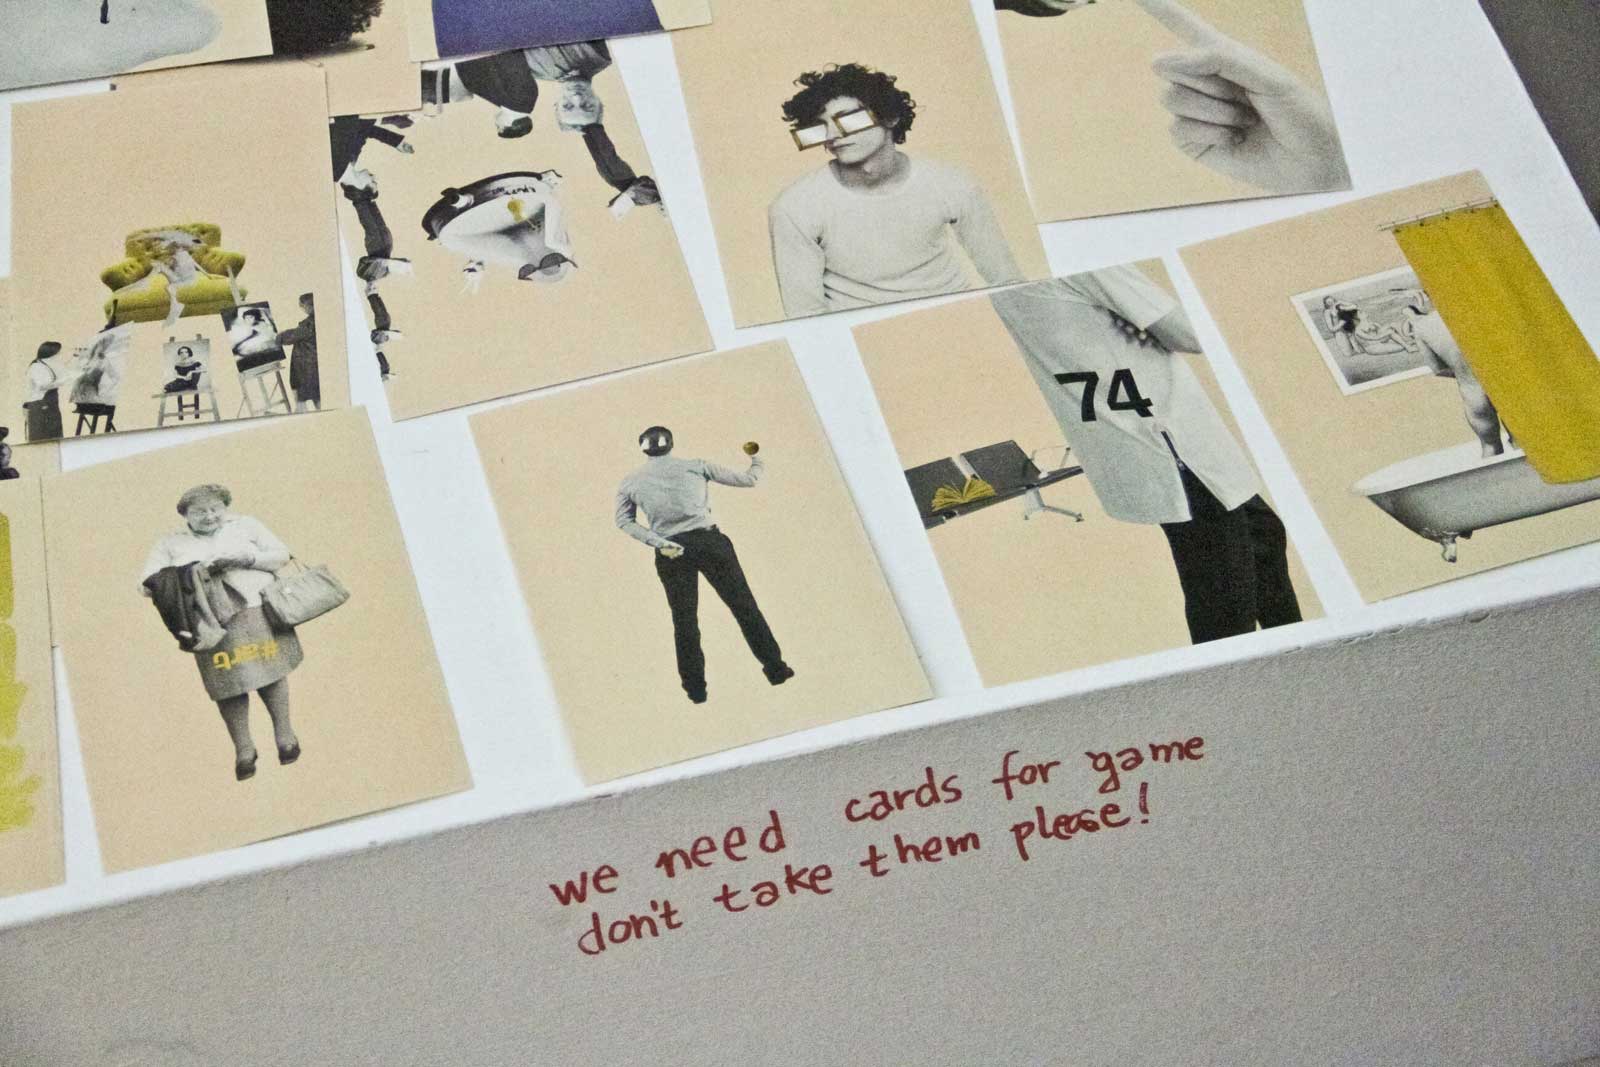 74
#art
we need cards for game
don't take them please!